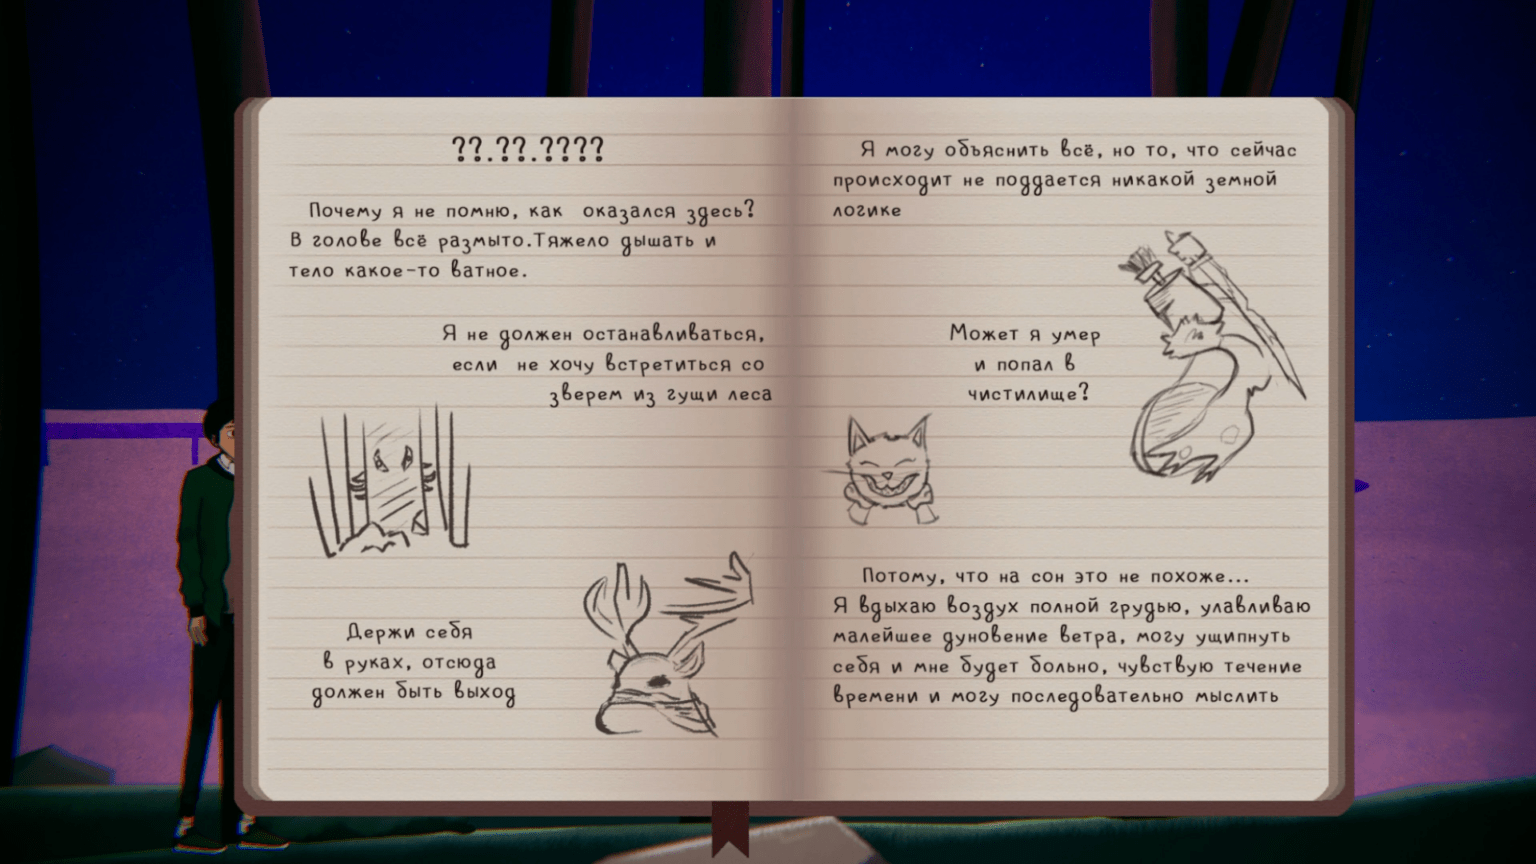 ??.??.????
Почему я не помню, как оказался здесь?
В голове всё размыто.Тяжело дышать и
тело какое-то ватное.
Я не должен останавливаться,
если не хочу встретиться со
зверем из гущи леса
Держи себя
в руках, отсюда
должен быть выход
Я могу объяснить всё, но то, что сейчас
происходит не поддается никакой земной
логике
Может я умер
и попал в
чистилище?
Потому, что на сон это не похоже...
Я вдыхаю воздух полной грудью, улавливаю
малейшее дуновение ветра, могу ущипнуть
себя и мне будет больно, чувствую течение
времени и могу последовательно мыслить